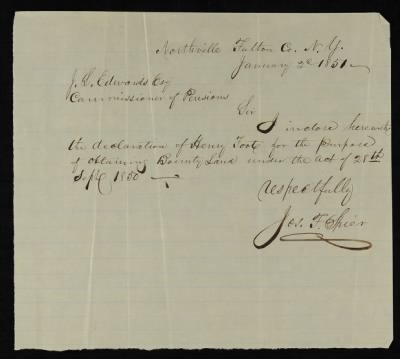 Northville Fulton Co. N.Y.
January 2d 1851
J. L. Edwards Esq
Commissioner of Pensions
Sir
I inclose herewith
the declaration of Henry Foot for the purpose
of obtaining Bounty Land under the act of 28th
Sept 1850
respectfully
Jos. F. Spier